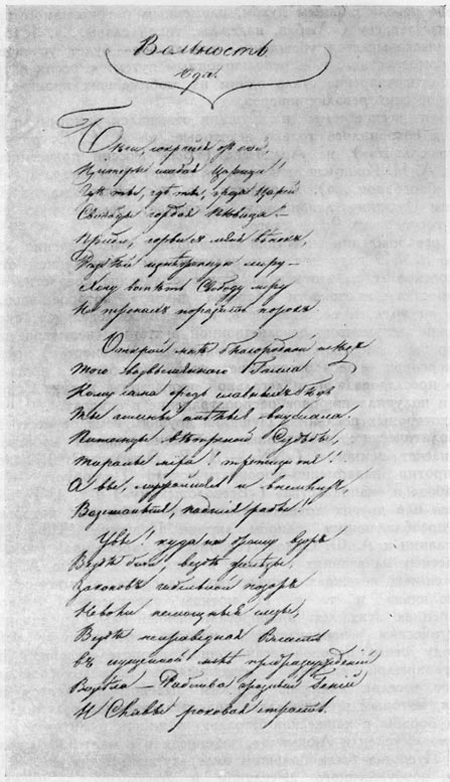 Вольность
Ода.
Бѣги, сокройся отъ очей,
Цитеры слабая Царица!
Гдѣ ты, гдѣ ты, гроза Царей
Свободы гордая пѣвица? —
Приди, сорви съ меня вѣнокъ,
Разбей изнѣженную лиру —
Хочу воспѣть Свободу міру
На тронахъ поразить порокъ.
Открой мнѣ благородной слѣдъ
Того возвышеннаго Галла
Кому сама средь славныхъ бѣдъ
Ты гимны смѣлые внушала,
Питомцы вѣтреной Судьбы,
Тираны міра! трепещите!
А вы, мужайтесь и внемлите,
Возстаньте, падшіе рабы!!
Увы! куда ни брошу взоръ
Вездѣ бичи, вездѣ желѣзы,
Законовъ гибельной позоръ
Неволи немощныя слезы,
Вездѣ неправедная Власть
въ сгущенной мглѣ предразсужденій
Возсѣла — Рабства грозный Геній
И Славы роковая страсть.